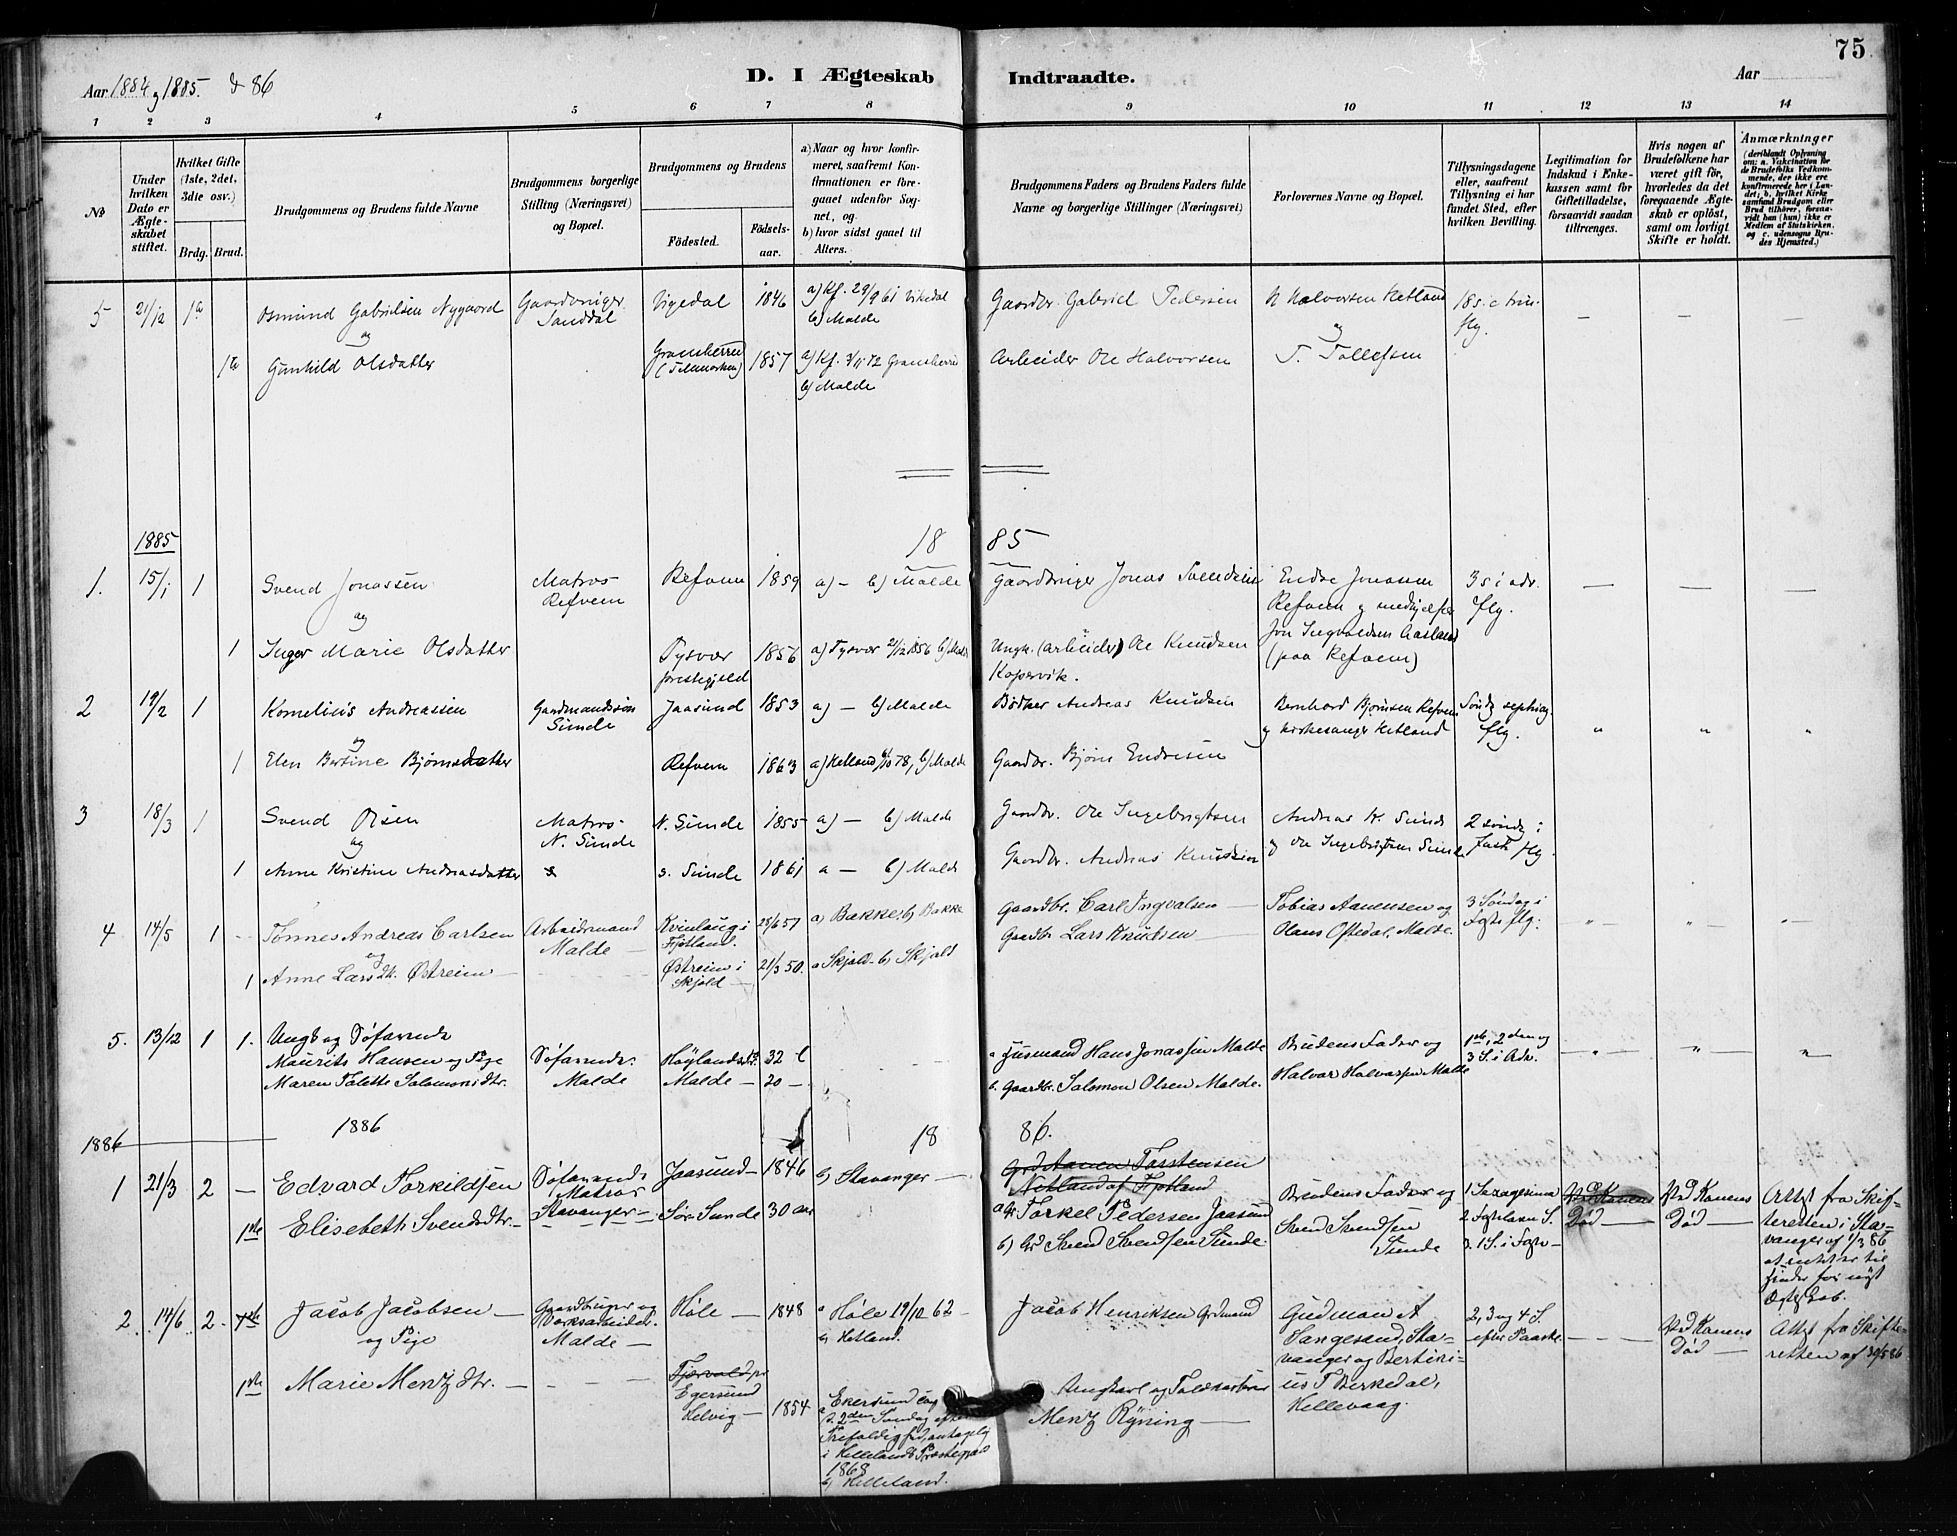 75
Aar 1884 og 1885. & 86
D. I Ægteskab Indtraadte.
Aar
1 2 3 4 5 6 7 8 9 10 11 12 13 14
No
Under hvilken Dato er Ægteskabet stiftet.
Hvilket Gifte (1ste, 2det, 3die osv.)
Brdg. Brud.
Brudgommens og Brudens fulde Navne
Brudgommens borgerlige Stilling (Næringsvei) og Bopæl.
Brudgommens og Brudens
Fødested.
Fødselsaar.
a) Naar og hvor konfirmeret, saafremt Konfirmationen er foregaaet udenfor Sognet, og
b) hvor sidst gaaet til Alters.
Brudgommens Faders og Brudens Faders fulde Navne og borgerlige Stillinger (Næringsvei)
Forlovernes Navne og Bopæl.
Tillysningsdagene eller, saafremt Tillysning ei har fundet Sted, efter hvilken Bevilling.
Legitimation for Indskud i Enkekassen samt for Giftetilladelse, forsaavidt saadan tiltrænges.
Hvis nogen af Brudefolkene har været gift før, hvorledes da det foregaaende Ægteskab er opløst, samt om lovligt Skifte er holdt.
Anmærkninger (deriblandt Oplysning om: a. Vakcination for de Brudefolks Vedkommende, der ikke ere konfirmerede her i Landet; b. hvilket Kirkesamfund Brudgom eller Brud tilhører, forsaavidt han (hun) ikke er Medlem af Statskirken, og c. udensogns Brudes Hjemsted.)
5 21/12 1te Osmund Gabrielsen Nygaard Gaardbruger Sanddal Vigedal 1846 a) Kf. 29/9 61 Vikedal b) Malde Gaardbr. Gabriel Pedersen N Halvorsen Ketland 18 s. e trin. flg. — — —
og og
1te Gunhild Olsdatter Gransherred (Telemarken) 1857 a) Kf. 3/11 72 Gransherred b) Malde Arbeider Ole Halvorsen T. Tollefsen
1885 18 85
1. 15/1 1 Svend Jonassen Matros Refvem 1859 a) — b) Malde Gaardbruger Jonas Svendsen Endre Jonassen 3 s i adv. flg. — — —
og Refvem Refvem og medhjelper
1 Inger Marie Olsdatter Tysvær prestegjeld 1856 a) Tysvær b) Malde Ungk. (arbeider) Ole Knudsen Kopervik. Jon Ingvaldsen Aasland (paa Refvem)
2 19/2 1 Kornelius Andreassen Gardmandssøn Sunde Jaasund 1853 a) — b) Malde Bødker Andreas Knudsen Bernhard Bjørnsen Refvem og kirkesanger Ketland Sønd. septuag. flg. " " "
og
1 Elen Bertine Bjørnsdatter Refvem 1863 a) Kelland 78, b) Malde Gaardbr. Bjørn Endresen
3 18/3 1 Svend Olsen Matros N. Sunde N. Sunde 1855 a) — b) Malde Gardbr. Ole Ingebrigtsen Andreas K. Sunde og Ole Ingebrigtsen Sunde 2 sønd. i Faste flg.
og
1 Anne Kristine Andreasdatter s. Sunde 1861 a — b) Malde Gaardbr. Andreas Knudsen
4 14/5 1 — Tønnes Andreas Carlsen Arbeidsmand Malde Kvinlaug i Fjotland. 28/6 57 a) Bakke. b) Bakke Gaardbr. Carl Ingvalsen — Tobias Aanensen og Olaus Oftedal. Malde. 3 Søndag i Faste flg. " " "
og
1 Anne Larsdtr. Østreim — Østreim i Skjold — 21/3 50. a Skjold. b) Skjold Gaardbr Lars Knutsen —
5. 13/12 1 1. Ungk og Søfarende Maurits Hansen og Pige Søfarende. Malde Høylandsstr. 32 a Husmand Hans Jonassen Malde Brudens Fader og 1ste, 2den og 3 S. i Adv. — " — " "
Maren Tolette Salomonsdtr. Malde — 20 — b. Gaardbr. Salomon Olsen Malde. Halvar Halvorsen Malde
1886 1886 18 86.
Tarstensen
Netland af Fjotland
1 21/3 2 — Edvard Torkildsen Søfarende Matros Stavanger — Jaasund — 1846 b) Stavanger — Torkel Pedersen Jaasund Brudens Fader og Svend Svendsen Sunde 1 Sexagesima 2 Fastelavn S. 3. 1 S. i Faste — Ved Konens Død — Ved Konens Død — Attest fra Skifteretten i Stavanger af 1/3 86 at intet er til hinder for nyt Ægteskab.
1ste Elisebeth Svendsdtr. — Sør Sunde 30 aar b) Svend Svendsen Sunde.
2 14/6 2 1ste Jacob Jacobsen — Gaardbruger og Verksarbeider. Malde — Høle — 1848 a Høle 19/10 62 — b) Hetland. Jacob Henriksen Grdmand Gudman A Tangesand, Stavanger og Bertinius T Birkedal, Hellevaag. 2, 3 og 4 S. efter Paaske. — Ved Konens Død — Attest fra Skifteretten af 30/5 86
og Pige
1ste Marie Mentzdtr. — Fjærvold pr Egersund Helvig — 1854 a Ekersund 2den Søndag efter Trefoldighed, antagelig i Hellelands Præstegjæld 1868 b) Helleland. Ungkarl og Mentz Ryning —